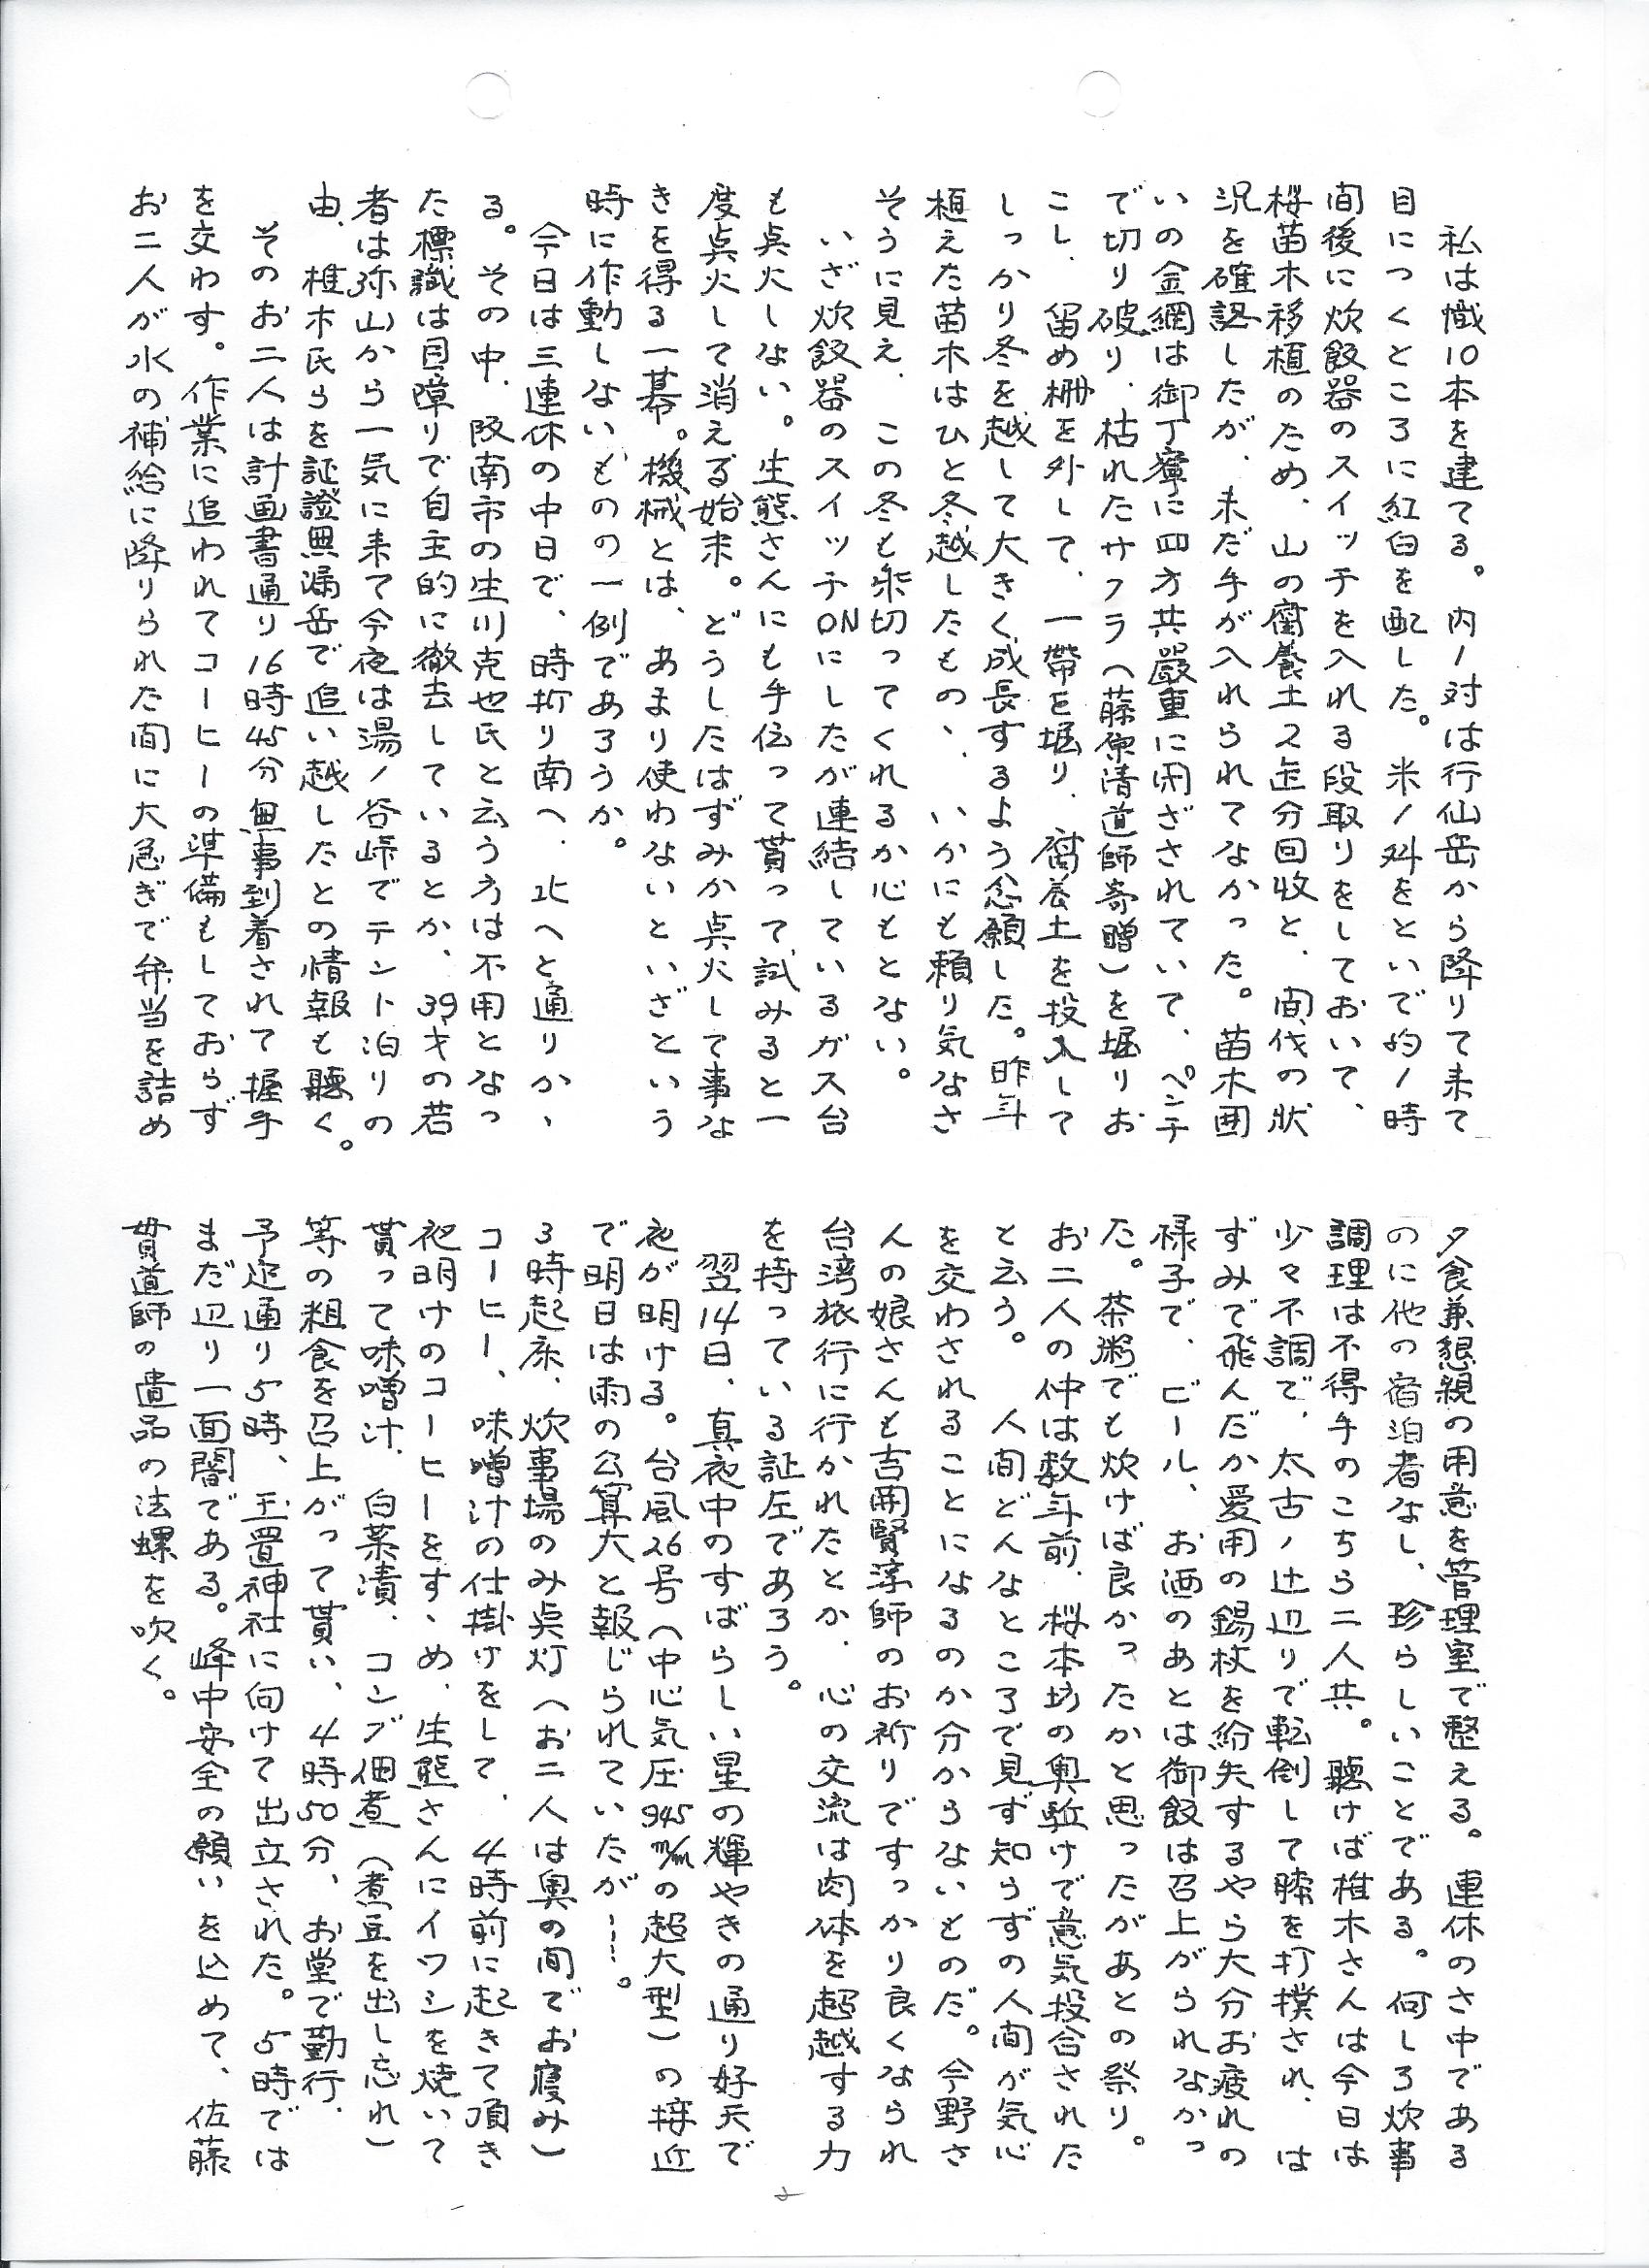 私は幟10本を建てる。内ノ対は行仙岳から降りて来て
目につくところに紅白を配した。米ノ升をといで約ノ時
間後に炊飯器のスイッチを入れる段取りをしておいて、
桜苗木移植のため、山の腐養土2缶分回收と、間伐の状
況を確認したが、未だ手が入れられてなかった。苗木囲
いの金網は御丁寧に四方共嚴重に閉ざされていて、ペンチ
で切り破り、枯れたサクラ(藤原清道師寄贈)を堀りお
こし、留め柵を外して、一帶を堀り、腐養土を投入して
しっかり冬を越して大きく成長するよう念願した。昨年
植えた苗木はひと冬越したもの、、いかにも頼り気なさ
そうに見え、この冬も乗切ってくれるか心もとない。
いざ炊飯器のスイッチONにしたが連結しているガス台
も点火しない。生熊さんにも手伝って貰って試みると一
度点火して消える始末。どうしたはずみか点火して事な
きを得る一幕。機械とは、あまり使わないといざという
時に作動しないものの一例であろうか。
今日は三連休の中日で、時折り南へ、北へと通りか、
る。その中、阪南市の生川克也氏と云う方は不用となっ
た標識は目障りで自主的に撤去しているとか、39才の若
者は弥山から一気に来て今夜は湯ノ谷峠でテント泊りの
由、椎木氏らを証證無漏岳で追い越したとの情報も聽く。
そのお二人は計画書通り16時45分無事到着されて握手
を交わす。作業に追われてコーヒーの準備もしておらず
お二人が水の補給に降りられた間に大急ぎで弁当を詰め
夕食兼懇親の用意を管理室で整える。連休のさ中である
のに他の宿泊者なし、珍らしいことである。何しろ炊事
調理は不得手のこちら二人共。聽けば椎木さんは今日は
少々不調で、太古ノ辻辺りで転倒して膝を打撲され、は
ずみで飛んだか愛用の錫杖を紛失するやら大分お疲れの
様子で、ビール、お洒のあとは御飯は召上がられなかっ
た。茶粥でも炊けば良かったかと思ったがあとの祭り。
お二人の仲は数年前、桜本坊の奥駈けで意気投合された
と云う。人間どんなところで見ず知らずの人間が気心
を交わされることになるのか分からないものだ。今野さ
人の娘さんも吉開賢淳師のお祈りですっかり良くなられ
台湾旅行に行かれたとか、心の交流は肉体を超越する力
を持っている証左であろう。
翌14日、真夜中のすばらしい星の輝やきの通り好天で
夜が明ける。台風26号(中心気圧945㎜の超大型)の接近
で明日は雨の公算大と報じられていたが……。
3時起床、炊事場のみ点灯(お二人は奥の間でお寝み)
コーヒー、味噌汁の仕掛けをして、4時前に起きて頂き
夜明けのコーヒーをすゝめ、生熊さんにイワシを焼いて
貰って味噌汁、白菜漬、コンブ佃煮(煮豆を出し忘れ)
等の粗食を召上がって貰い、4時50分、お堂で勤行、
予定通り5時、玉置神社に向けて出立された。5時では
まだ辺り一面闇である。峰中安全の願いを込めて、佐藤
貫道師の遺品の法螺を吹く。